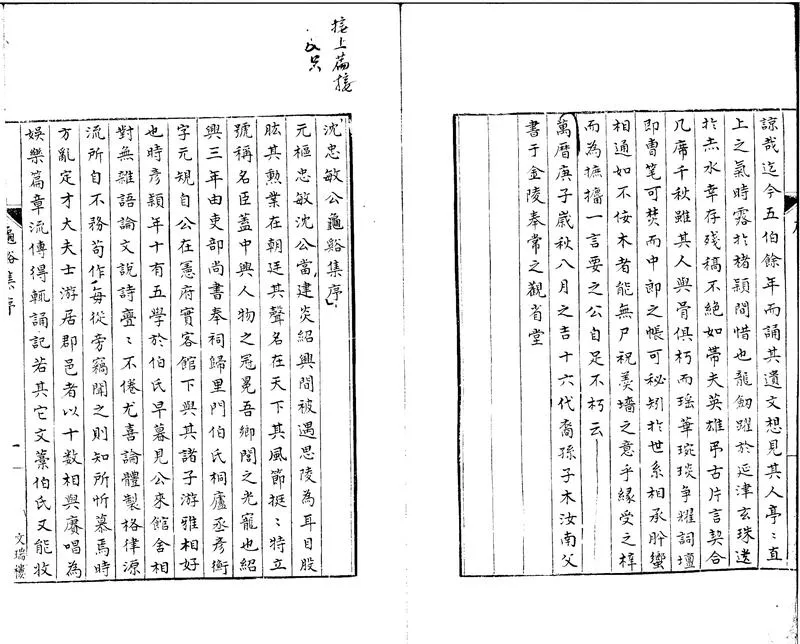 諒哉迄今五伯餘年而誦其遺文想見其人亭〻直
上之氣時露於楮穎間惜也龍劒躍於延津玄珠遺
於赤水幸存殘稿不絕如帶夫英雄弔古片言契合
几席千秋雖其人與骨俱朽而瑶華琬琰争耀詞壇
即曹笔可焚而中郎之帳可秘矧於世系相承肸蠁
相通如不佞木者能無尸祝羹墻之意乎緣受之梓
而為摭攟一言要之公自足不朽云
萬曆庚子歲秋八月之吉十六代裔孫子木汝南父
書于金陵奉常之觀省堂
接上篇接
沈忠敏公龜谿集序
元樞忠敏沈公當建炎紹興間被遇思陵為耳目股
肱其勲業在朝廷其聲名在天下其風節挺〻特立
號稱名臣蓋中興人物之冠冕吾鄉閭之光寵也紹
興三年由吏部尚書奉祠歸里門伯氏桐廬丞彦衡
字元規自公在憲府實客館下與其諸子游雅相好
也時彦穎年十有五學於伯氏早暮見公來館舍相
對無雜語論文説詩亹〻不倦尤喜論體製格律源
流所自不務苟作每從旁竊聞之則知所忻慕焉時
方亂定才大夫士游居郡邑者以十數相與賡唱為
娛樂篇章流傳得輒誦記若其它文藁伯氏又能收
龜谿集序
一
文瑞樓